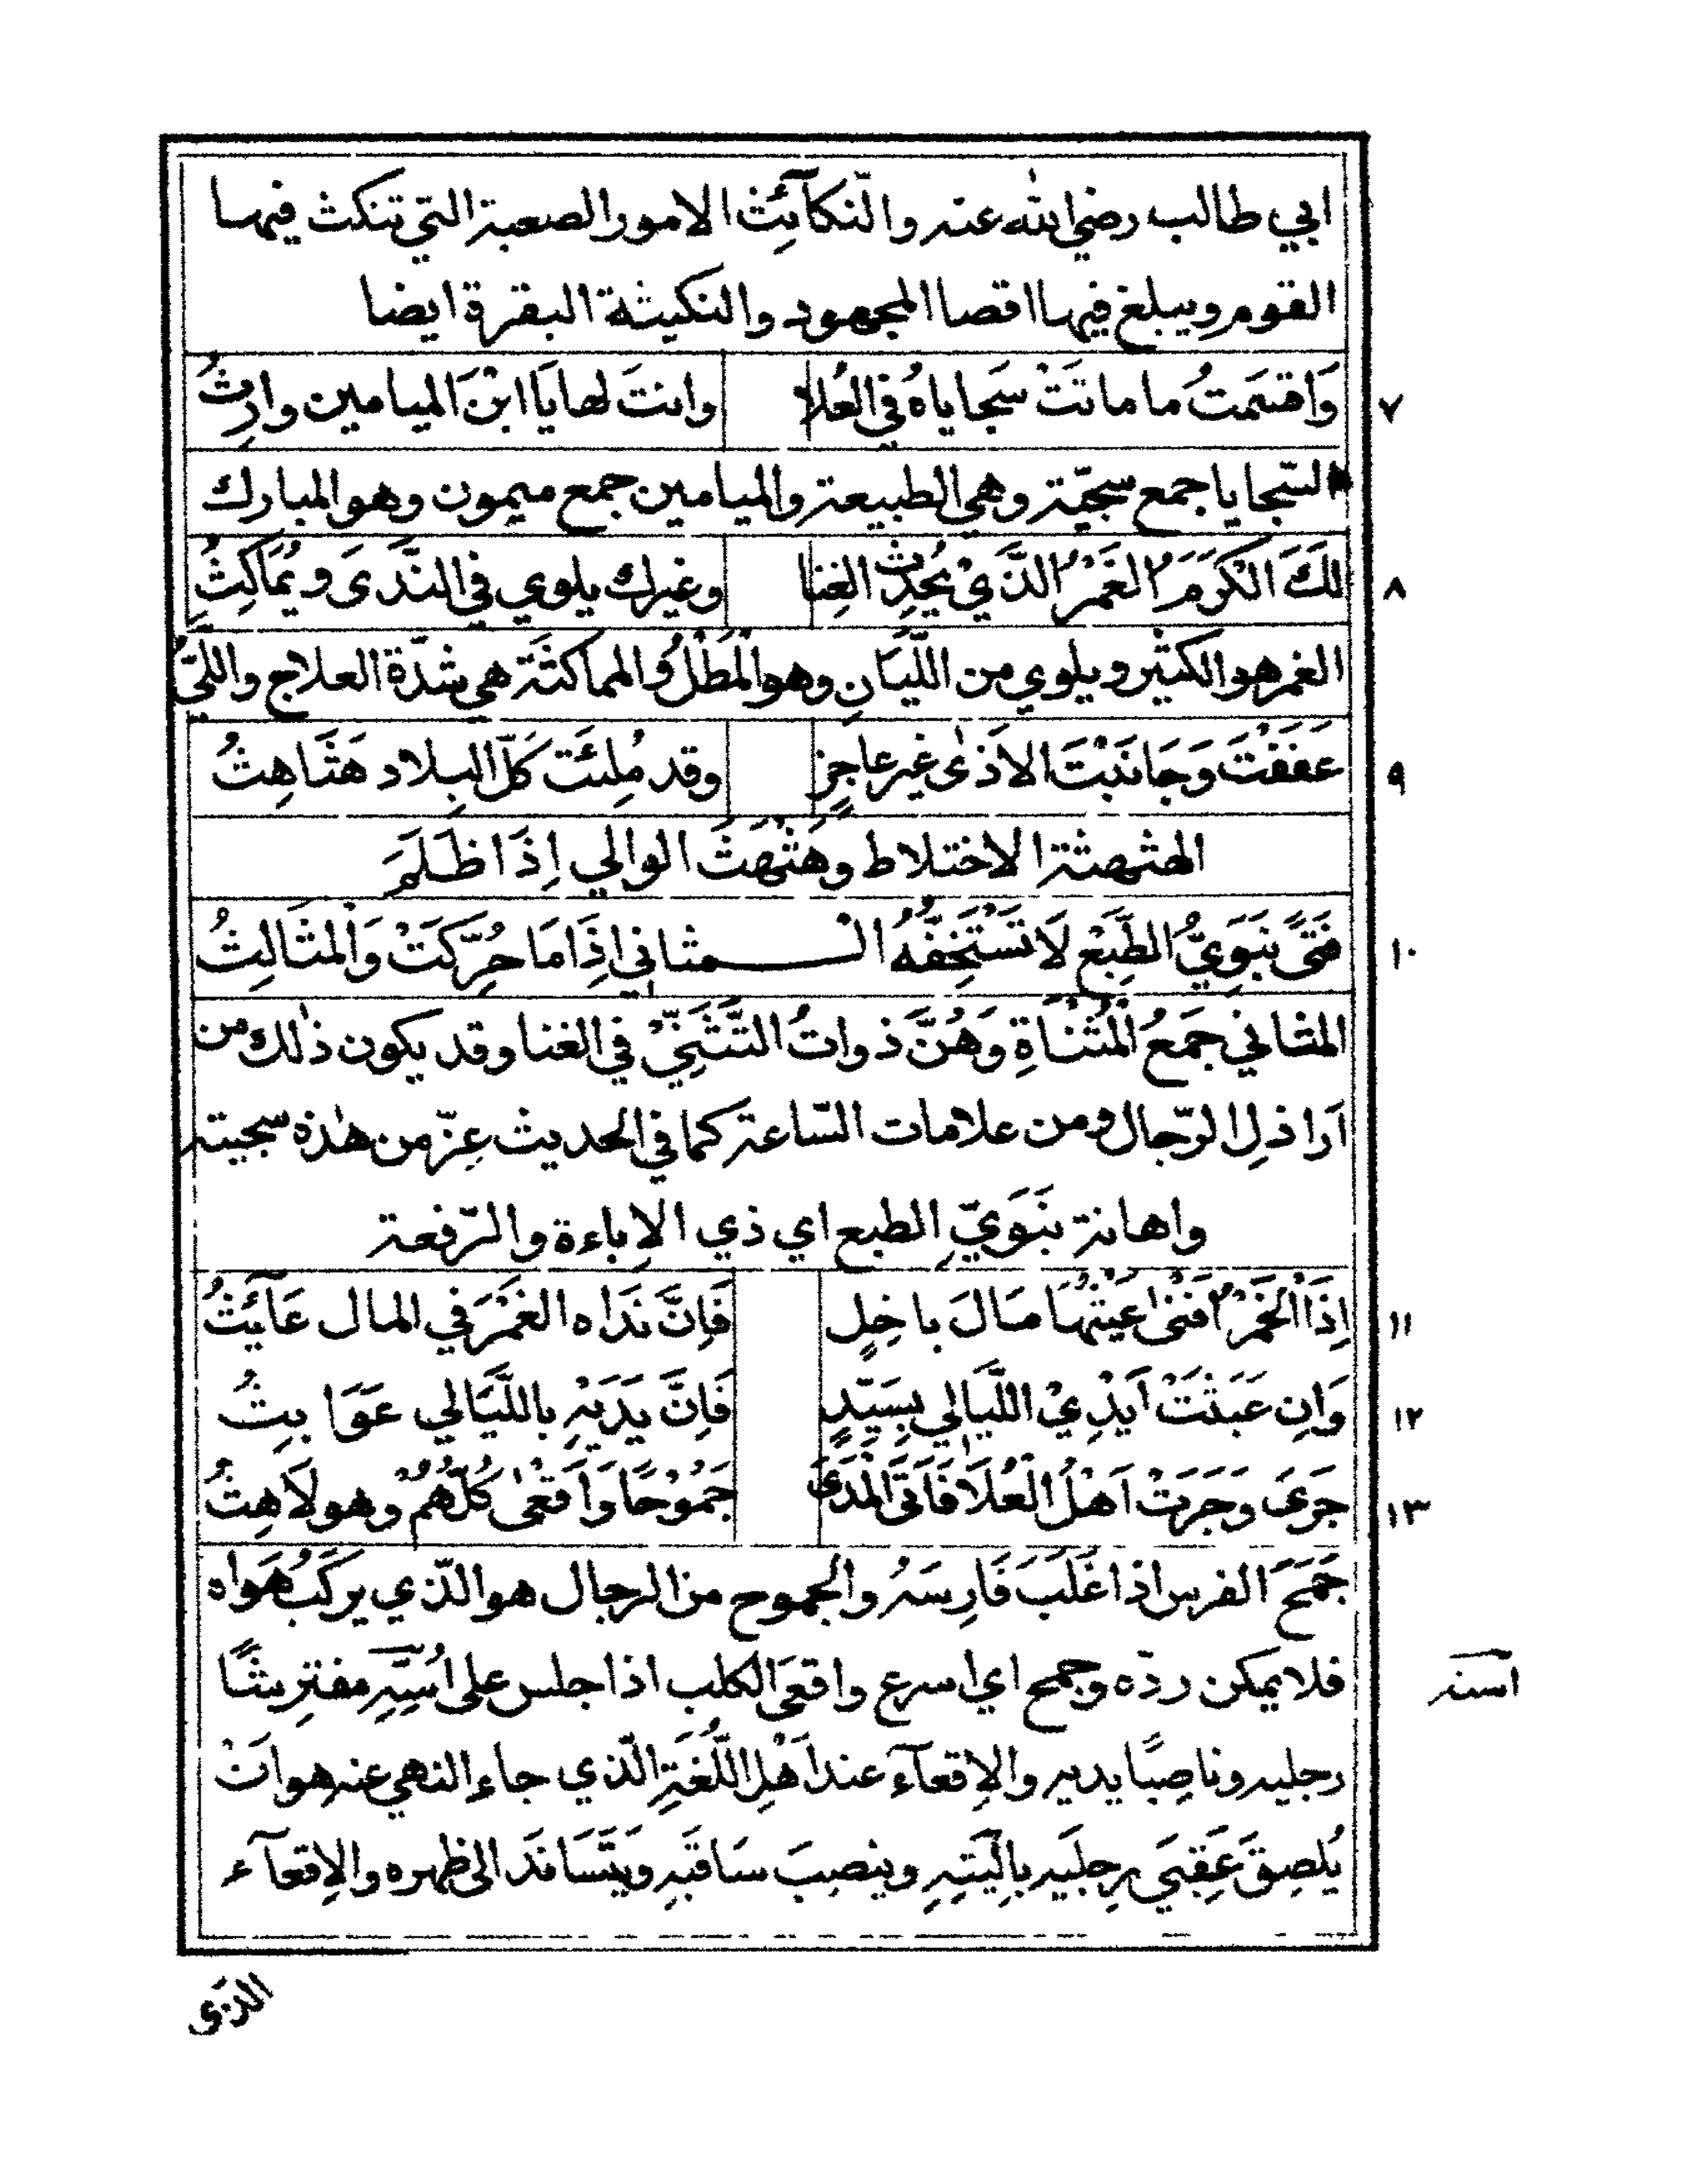 ابي طالب رضي الله عنه والنّكآئِث الامور الصعبة التي تنكث فيها
القوم ويبلغ فيها اقصا المجهود والنكيثة البقرة ايضا
٧ وَاقتسَمتُ ما ماتَتْ سَجاياهُ في العُلا وانتَ لها يَا ابْنَ الميامين وارِثُ
السّجايا جمع سجيّة وهي الطبيعة والميامين جمع ميمون وهو المبارك
٨ لكَ الْكَرَمُ الغَمْرُ الذَّيْ يُحْدِثُ الغِنا وغيرك يلوي في النَّدَى ويُمَاكِثُ
الغمر هو الكثير ويلوي من اللَّيَانِ وهو الْمَطْلُ والمماكثَة هي شدّة العلاج واللَّيِّ
٩ عَفَفْتَ وَجَانَبْتَ الاَذٰى غير عاجِزٍ وقد مُلِئَت كلّ البِلاد هَثَاهِثُ
الهثهثة الاختلاط وهَثْهَثَ الوالي اِذَا ظَلَمَ
١٠ فتىً نَبَوِيُّ الطَّبَعْ لَا تَسْتَخِفُّهُ الْـمثاني اِذَا مَا حُرِّكَتْ وَالْمثَالِثُ
المثاني جَمَعُ الْمُثْنَاةِ وَهُنَّ ذواتُ التَّثَنِّيْ في الغنا وقد يكون ذٰلك من
اَراذلِ الرّجال ومن علامات السّاعة كما في الحديث عِزّ من هٰذه سجيته
واهانة نبَوِيِّ الطبع اي ذي الاِباءة والرّفعة
١١ اِذَا الْخَمْرُ اَفنٰى عَيْنُهَا مَالَ باخِلٍ فَاِنَّ نَدَاه الغَمْرَ في المال عَآئِثُ
١٢ وَاِن عَبَثَتْ اَيْدِيْ اللَّيَالي بِسَيِّدٍ فَاِنَّ يَدَيْهِ باللَّيَالي عَوَابِثُ
١٣ جَرَى وَجَرَتْ اَهْلُ الْعُلَا فَاَتَى الْمَدَى جَمُوْحًا وَاَقعٰى كُلُّهُمْ وهو لَاهِثُ
جَمَحَ الفرس اذا غَلَبَ فَارِسَهُ والجموح من الرجال هو الذّي يركَبُ هَوَاه
فلا يمكن ردّه وجمح اي اسرع واقعَى الكلب اذا جلس على اُسْتِهِ مفترِشًا
اسنه
رجليه وناصِبًا يديه والاِقعآء عند اَهْلِ اللُّغَةِ الّذي جاء النهي عنه هو ان
يُلصِقَ عَقِبَي رِجلَيه بِاَلْيَتِهِ وينصبَ سَاقَيْهِ ويَتَسَانَدَ الى ظهره والاِقعآء
الذى